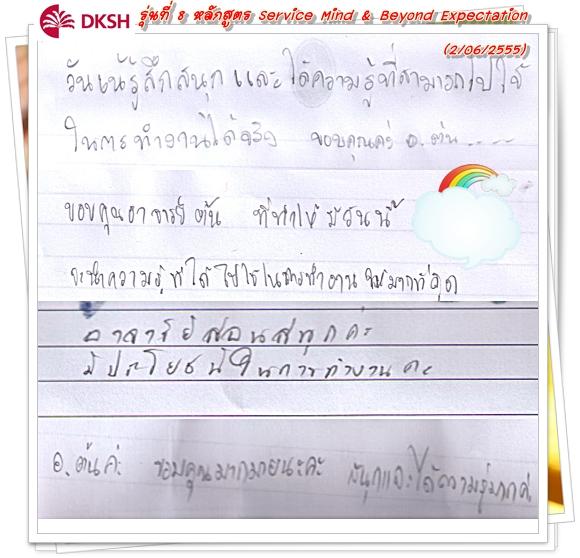 DKSH รุ่นที่ 8 หลักสูตร Service Mind & Beyond Expectation
(2/06/2555)
วันนี้รู้สึกสนุก และได้ความรู้ที่สามารถไปใช้
ในการทำงานได้จริง ขอบคุณค่ะ อ.ต้น
ขอบคุณอาจารย์ต้น ที่ทำให้มีวันนี้
จะนำความรู้ที่ได้ไปใช้ในการทำงาน มากที่สุด
อาจารย์สอนสนุกค่ะ
มีประโยชน์ในการทำงานค่ะ
อ.ต้นค่ะ ขอบคุณมากมายนะคะ สนุกและได้ความรู้มากค่ะ